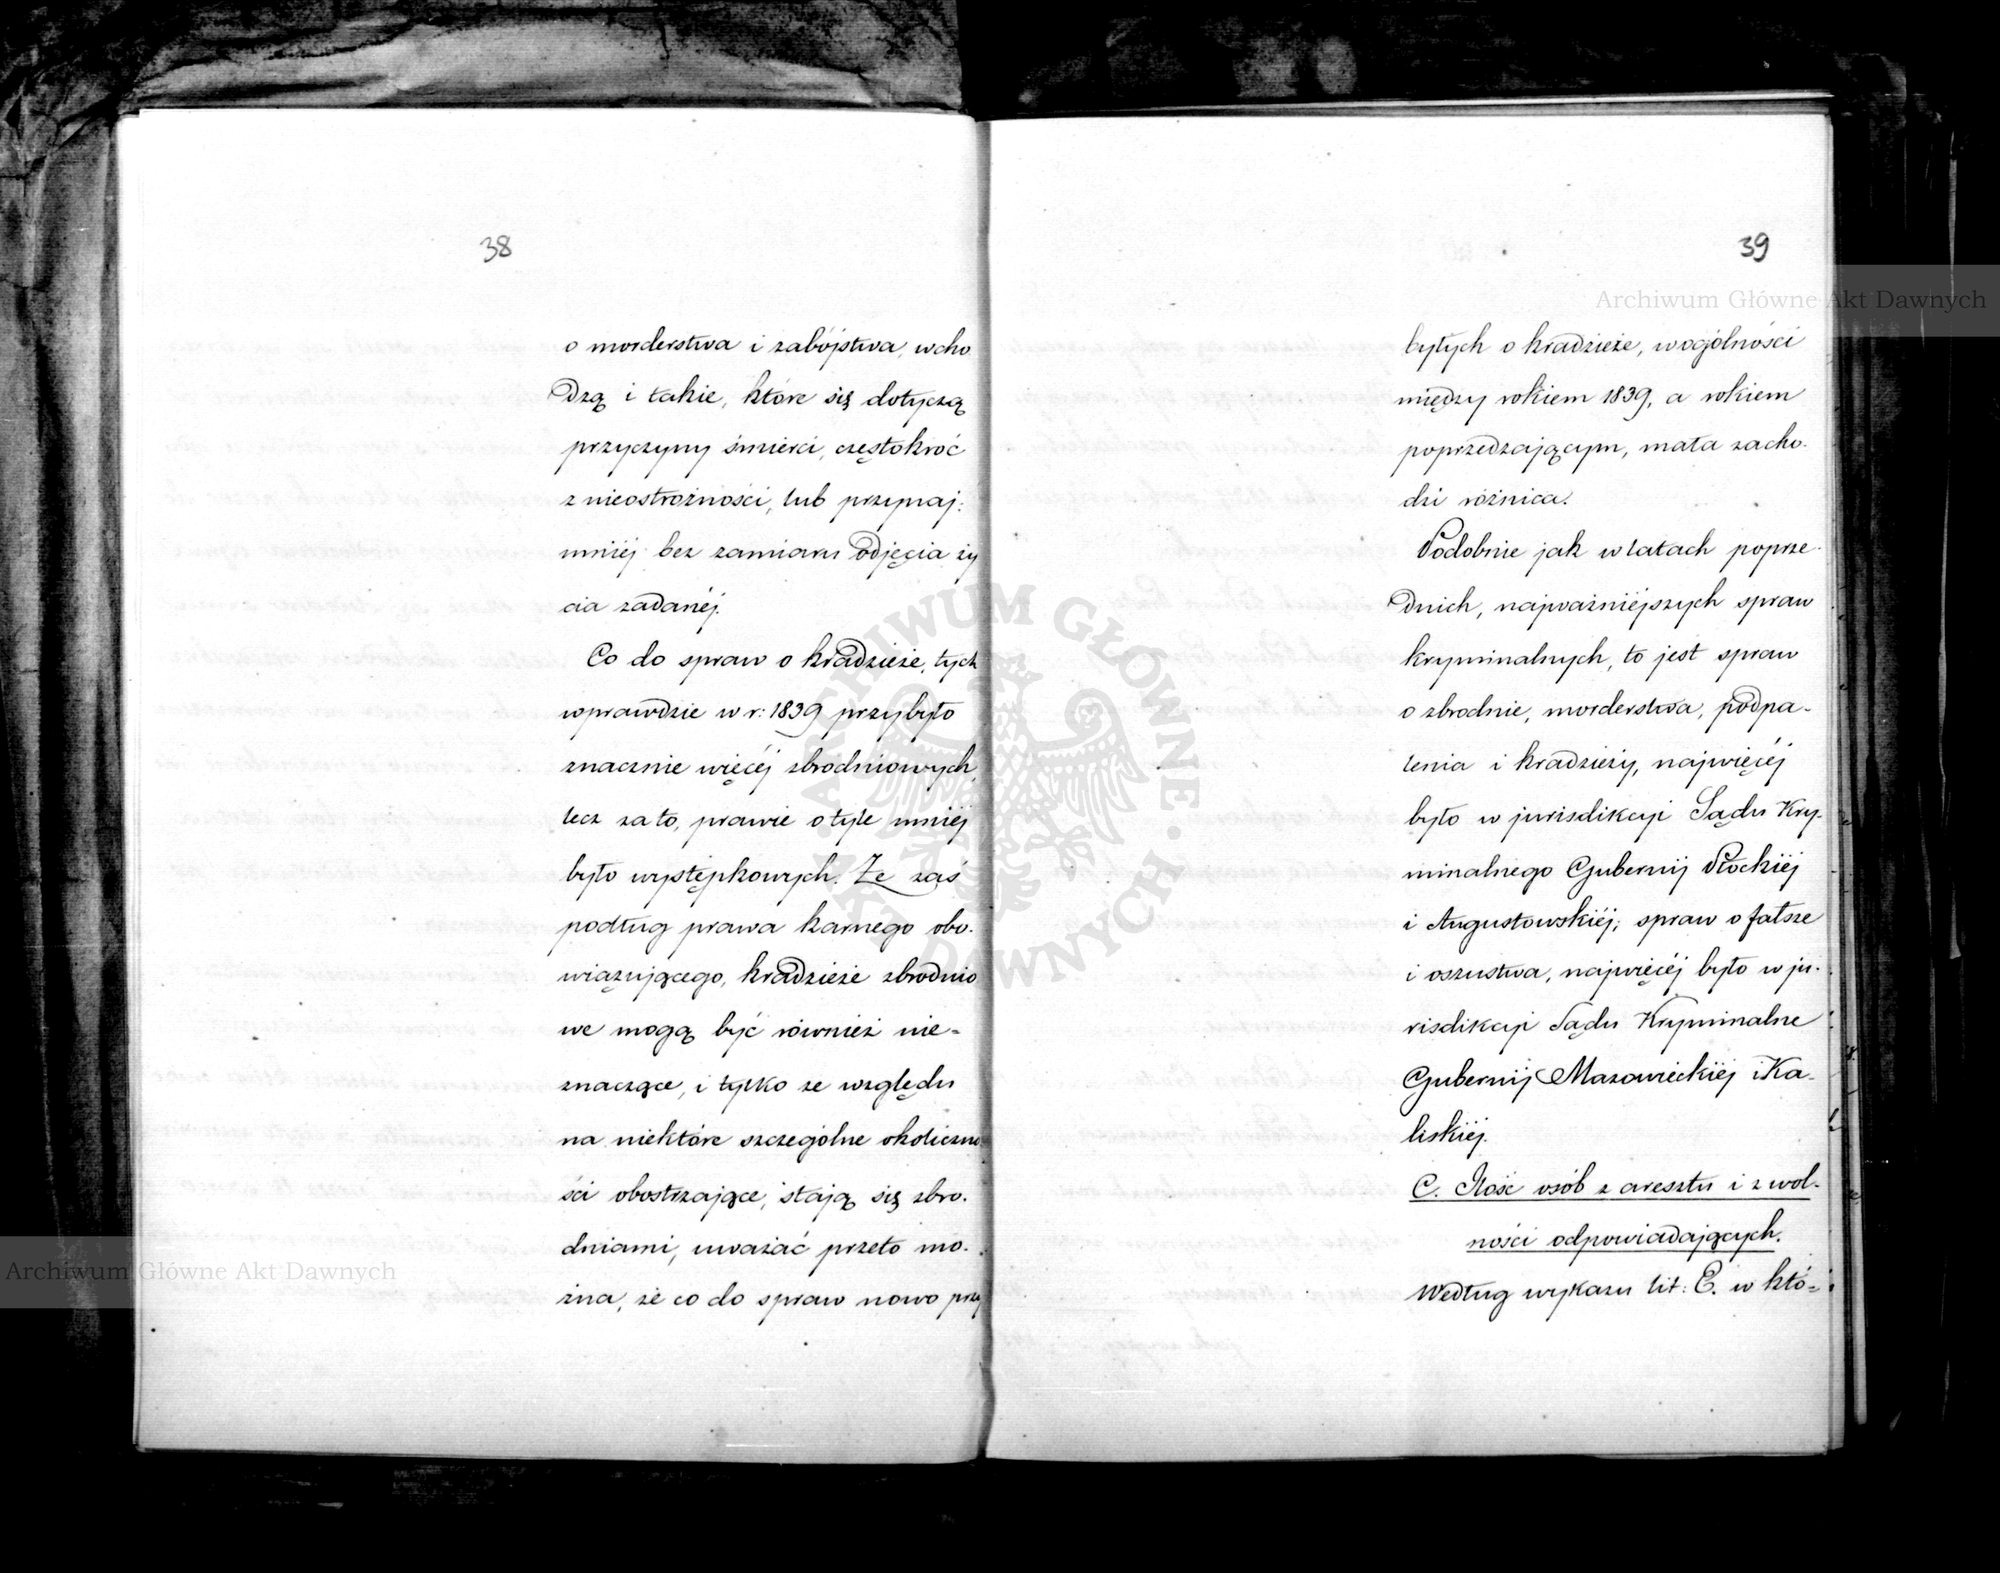 38
o morderstwa i zabójstwa, wcho
dzą i takie, które się dotyczą
przyczyny śmierci, częstokroć
z nieostrożności, lub przynaj:
mniéj bez zamiaru odjęcia ży
cia zadanéj.
Co do spraw o kradzieże, tych
wprawdzie w r: 1839 przybyło
znacznie więcéj zbrodniowych,
lecz za to, prawie o tyle mniéj
było występkowych. Że zaś
podług prawa karnego obo-
wiązującego, kradzieże zbrodnio
we mogą być również nie-
znaczące, i tylko ze względu
na niektóre szczególne okoliczno
ści obostrzające, stają się zbro-
dniami, uważać przeto mo-
żna, że co do spraw nowo przy
39
byłych o kradzieże, wogólności
między rokiem 1839, a rokiem
poprzedzającym, mała zacho-
dzi różnica.
Podobnie jak w latach poprze-
dnich, najważniéjszych spraw
kryminalnych, to jest spraw
o zbrodnie, morderstwa, podpa-
lenia i kradzieży, najwięcéj
było w jurisdikcyi Sądu Kry-
minalnego Gubernij Płockiéj
i Augustowskiéj; spraw o fałsze
i oszustwa, najwięcéj było w ju-
risdikcyi Sądu Kryminalne
Gubernij Mazowieckiéj i Ka-
liskiéj.
C. Ilość osób z aresztu i z wol-
ności odpowiadających.
Według wykazu lit: E. w któ-
Archiwum Główne Akt Dawnych
Archiwum Główne Akt Dawnych
ARCHIWUM GŁÓWNE AKT DAWNYCH